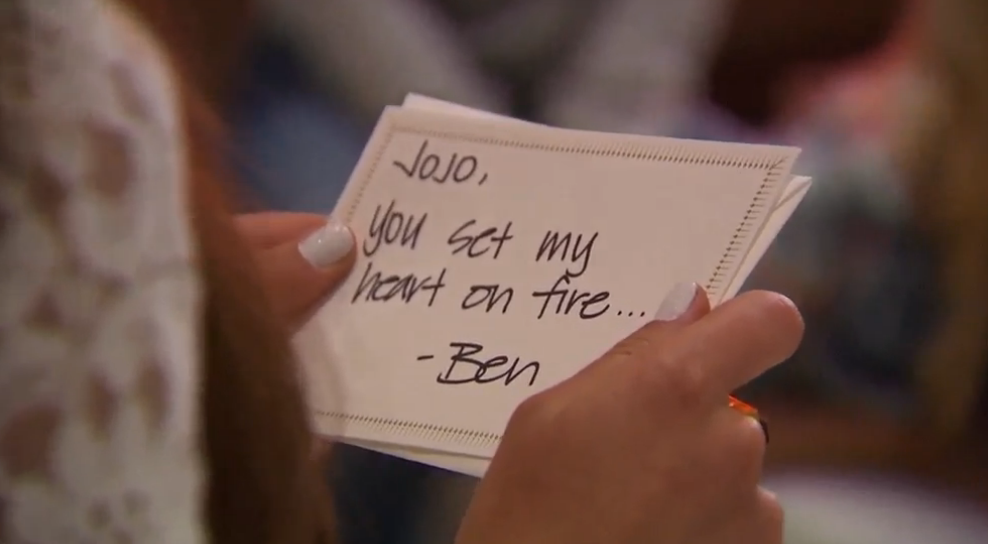 JoJo,
you set my
heart on fire...
-Ben